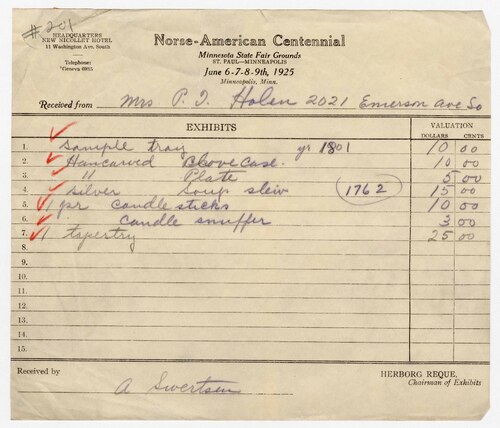 #201
HEADQUARTERS
NEW NICOLLET HOTEL
11 Washington Ave. South
Telephone:
Geneva 6955
Norse-American Centennial
Minnesota State Fair Grounds
ST. PAUL—MINNEAPOLIS
June 6-7-8-9th, 1925
Minneapolis, Minn.
Received from Mrs P. J. Holen 2021 Emerson Ave So
EXHIBITS VALUATION
DOLLARS CENTS
1. Sample tray yr 1801 10 00
2. Hancarved Glove Case. 10 00
3. " Plate 5 00
4. Silver Soup slew 1762 15 00
5. 1 pr candle sticks 10 00
6. candle snuffer 3 00
7. 1 tapertry 25 00
8.
9.
10.
11.
12.
13.
14.
15.
Received by HERBORG REQUE,
A Swertsen Chairman of Exhibits